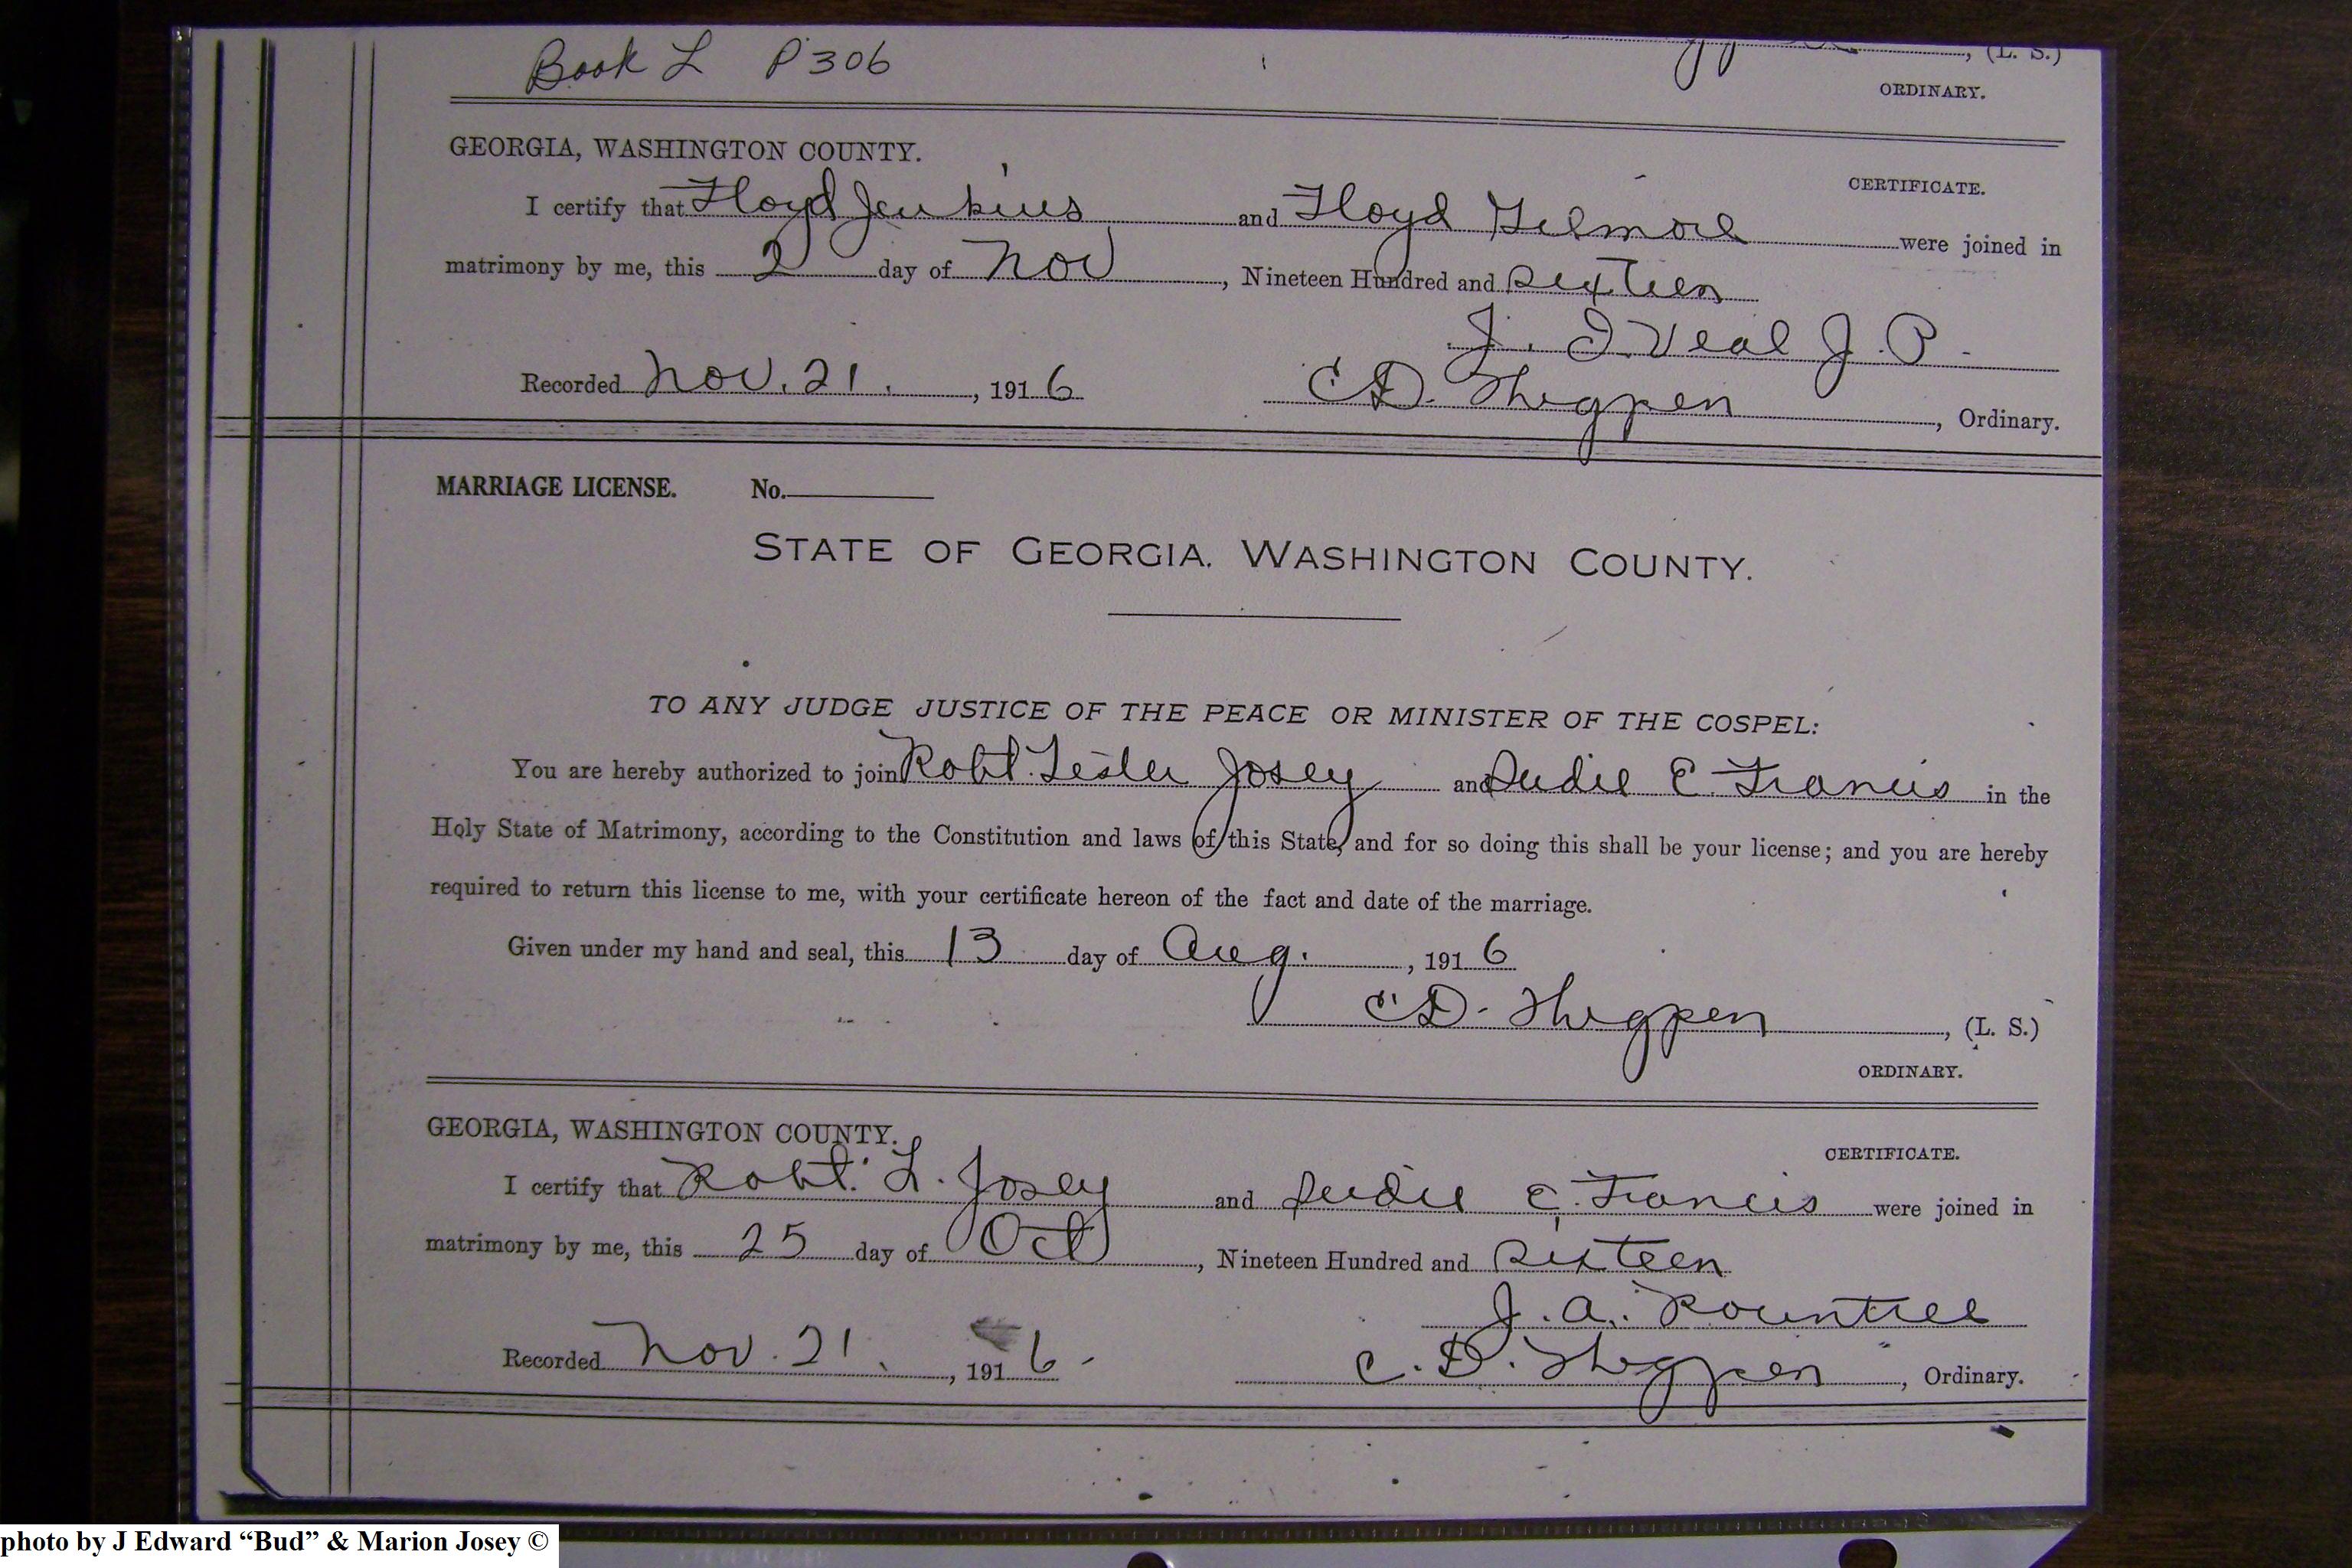 Book L P 306
, (L. S.)
ORDINARY.
GEORGIA, WASHINGTON COUNTY.
CERTIFICATE.
I certify that Floyd Jenkins and Floyd Gilmore were joined in
matrimony by me, this 2 day of Nov, Nineteen Hundred and Sixteen
J. I. Veal J. P.
Recorded Nov. 21, 1916
C D. Thigpen, Ordinary.
MARRIAGE LICENSE. No.
STATE OF GEORGIA. WASHINGTON COUNTY.
TO ANY JUDGE JUSTICE OF THE PEACE OR MINISTER OF THE COSPEL:
You are hereby authorized to join Robt. Lester Josey and Dudie E. Francis in the
Holy State of Matrimony, according to the Constitution and laws of this State, and for so doing this shall be your license; and you are hereby
required to return this license to me, with your certificate hereon of the fact and date of the marriage.
Given under my hand and seal, this 13 day of Aug., 1916
C D. Thigpen, (L. S.)
ORDINARY.
GEORGIA, WASHINGTON COUNTY.
CERTIFICATE.
I certify that Robt. L. Josey and Dudie E. Francis were joined in
matrimony by me, this 25 day of Oct, Nineteen Hundred and Sixteen
J. A. Rountree
Recorded Nov. 21, 1916-
C. D. Thigpen, Ordinary.
photo by J Edward “Bud” & Marion Josey ©